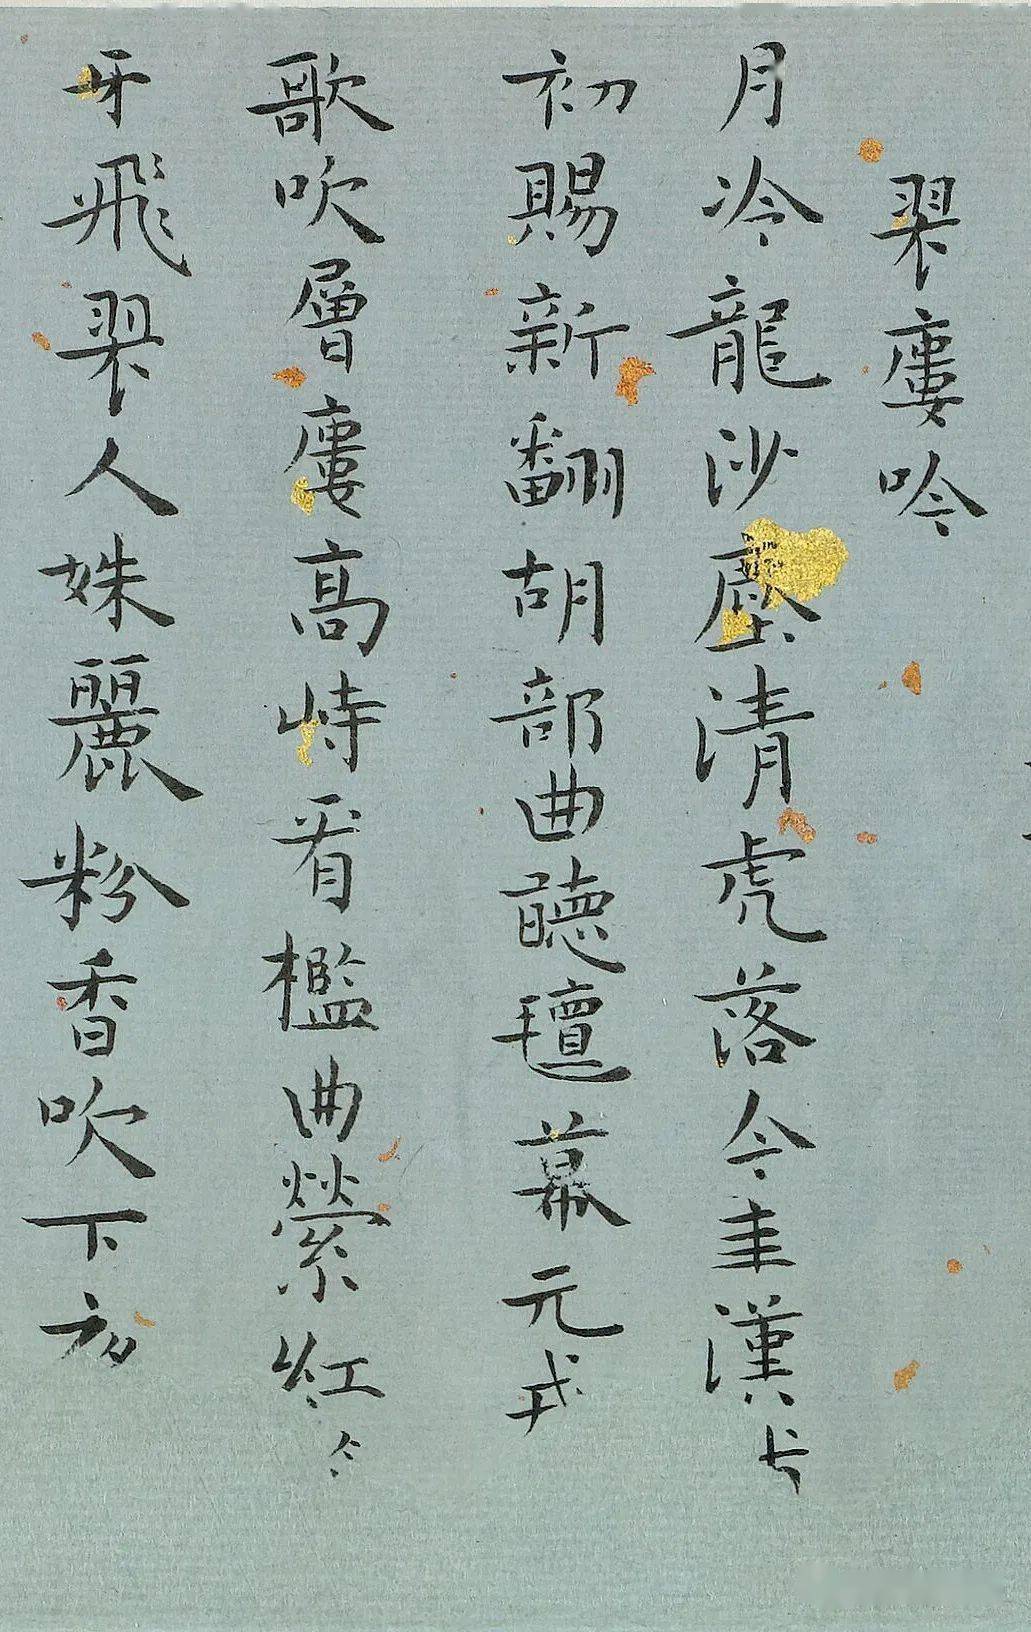 翠廔吟
月冷龍沙塵清虎落今年漢
初賜新翻胡部曲聽氈幕元戎
歌吹層廔高峙看檻曲縈紅
牙飛翠人姝麗粉香吹下